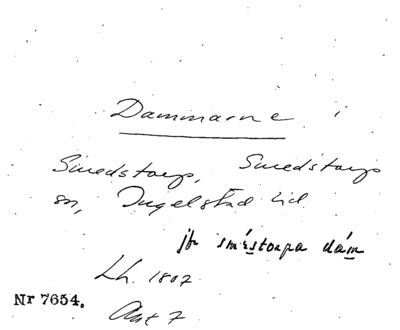 Dammarne
Smedstorp, Smedstorps
sn, Ingelstad hd
jfr smestorpa dám
Lh. 1807
Nr 7654.
Akt 7